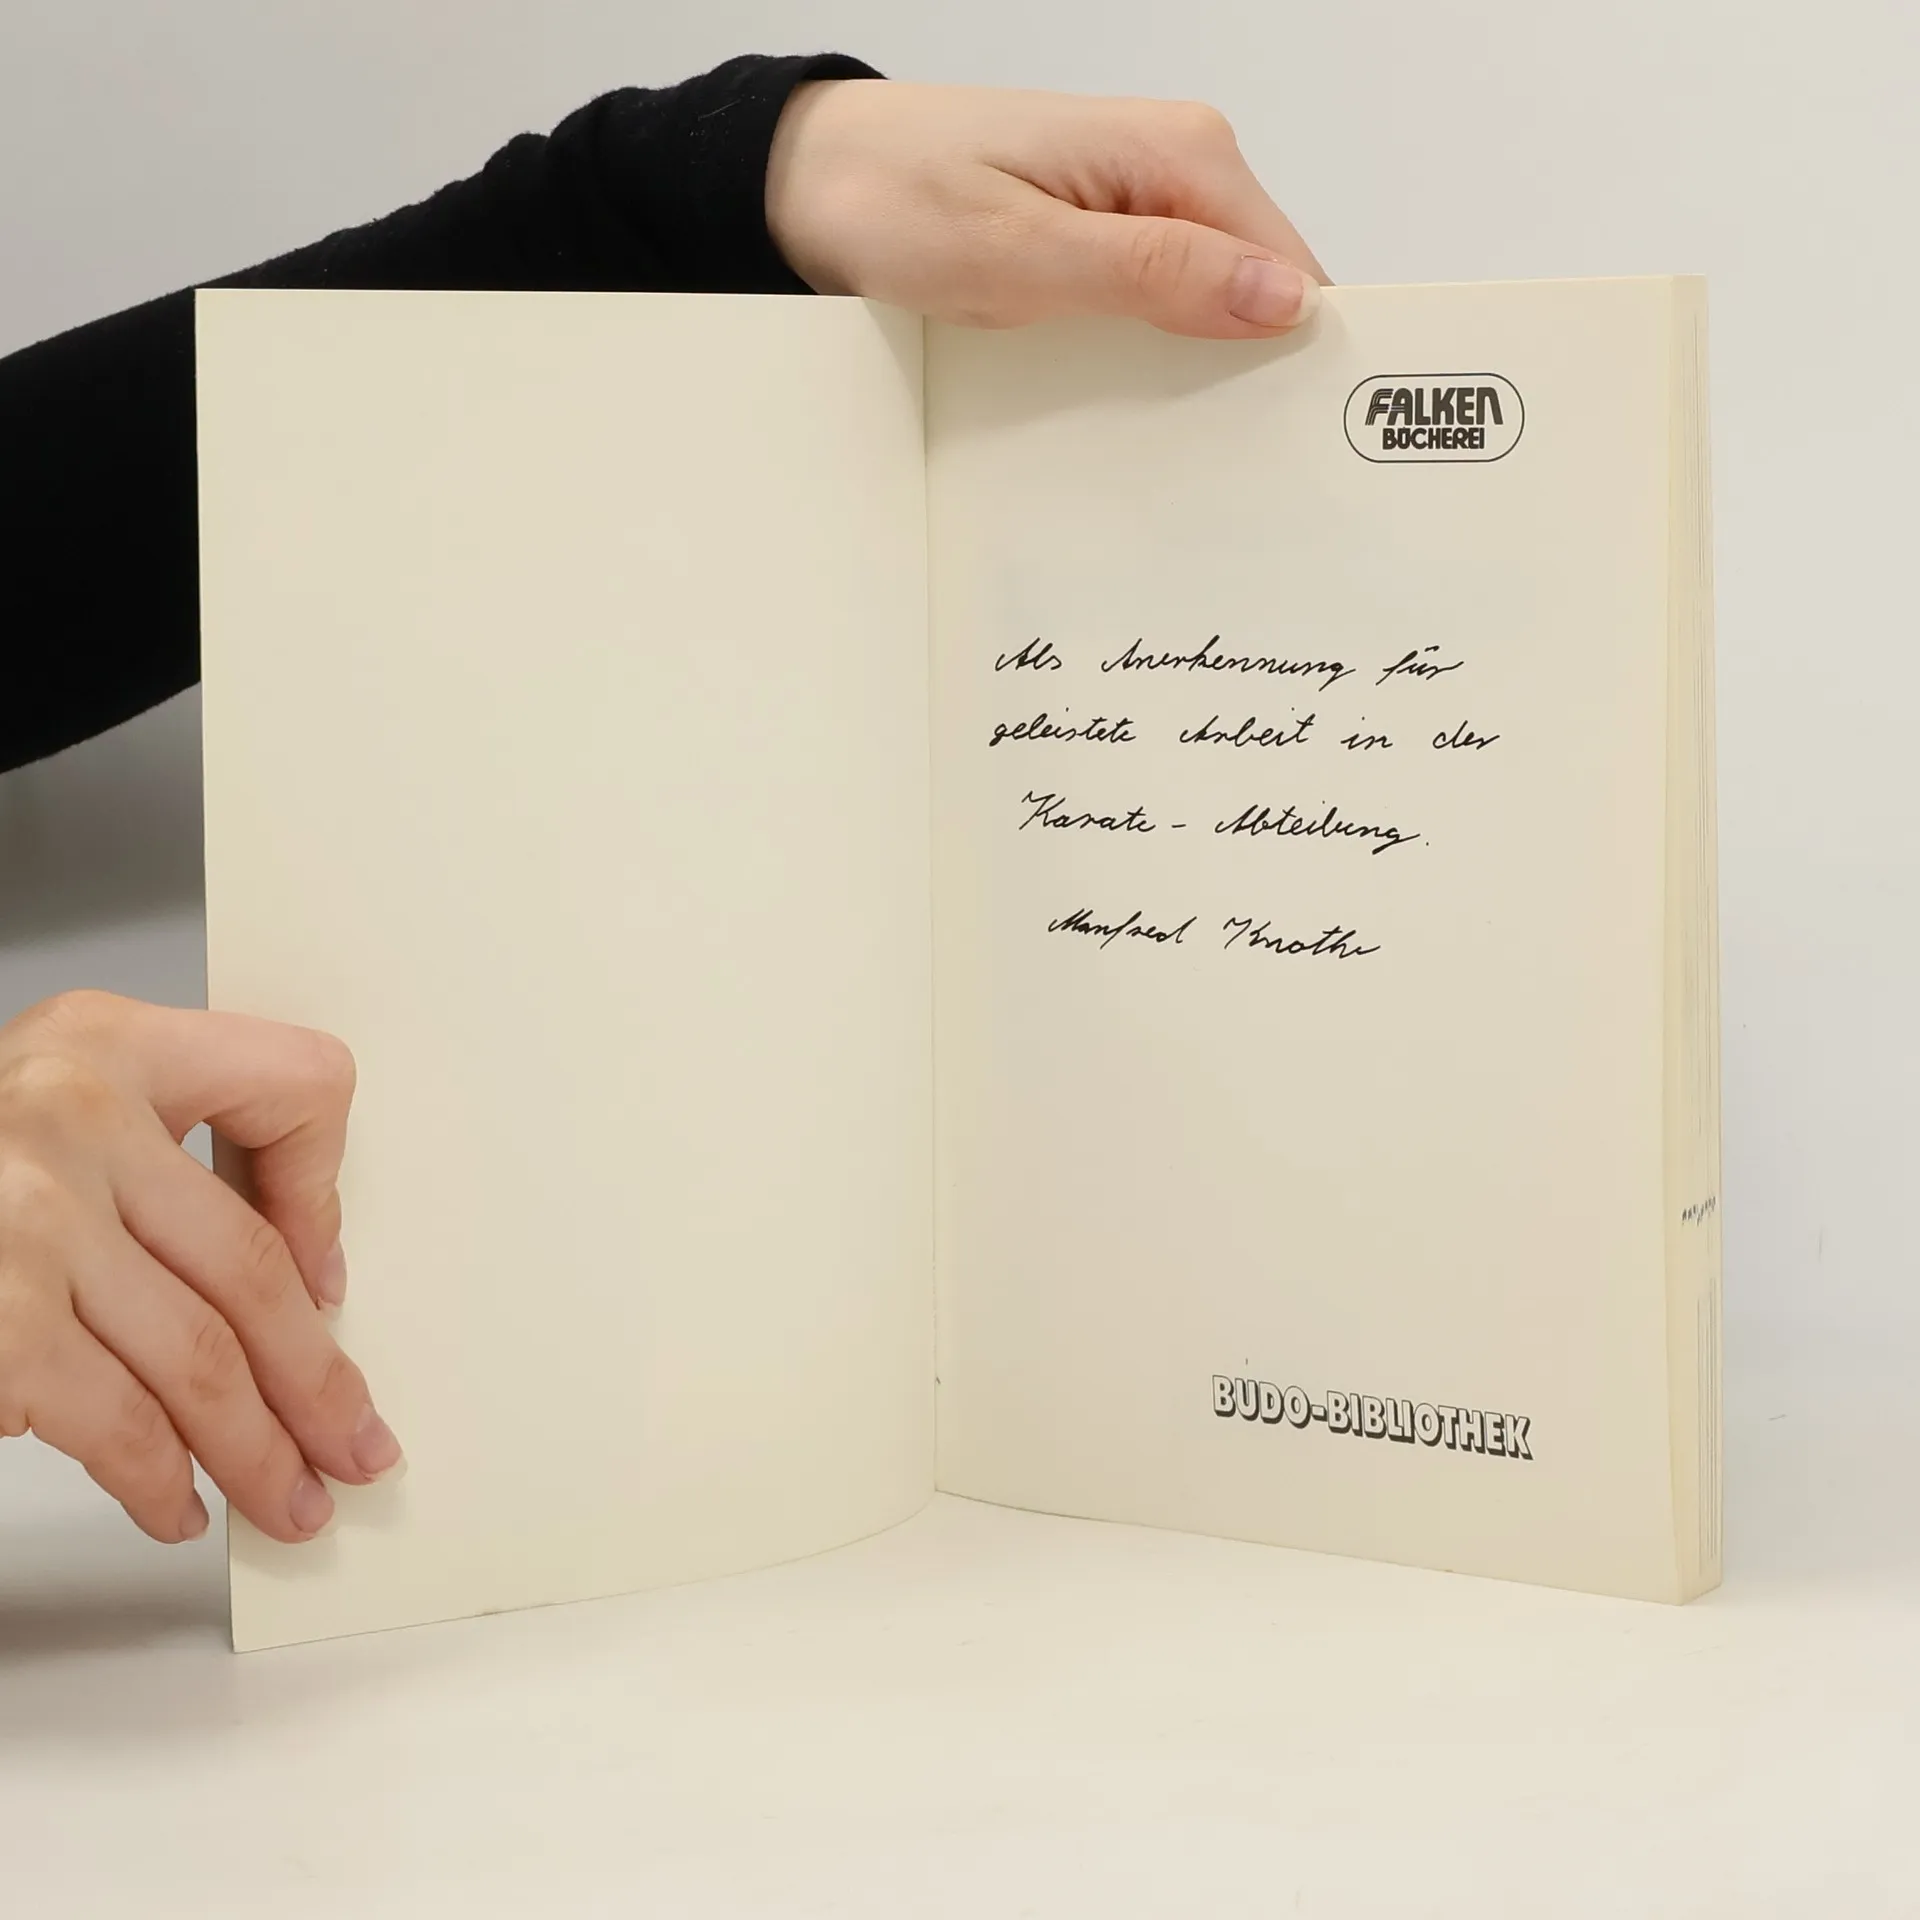 FALKEN
BÜCHEREI
Als Anerkennung für
geleistete Arbeit in der
Karate - Abteilung.
Manfred Knothe
BUDO-BIBLIOTHEK